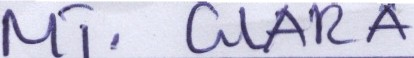 MT. CLARA